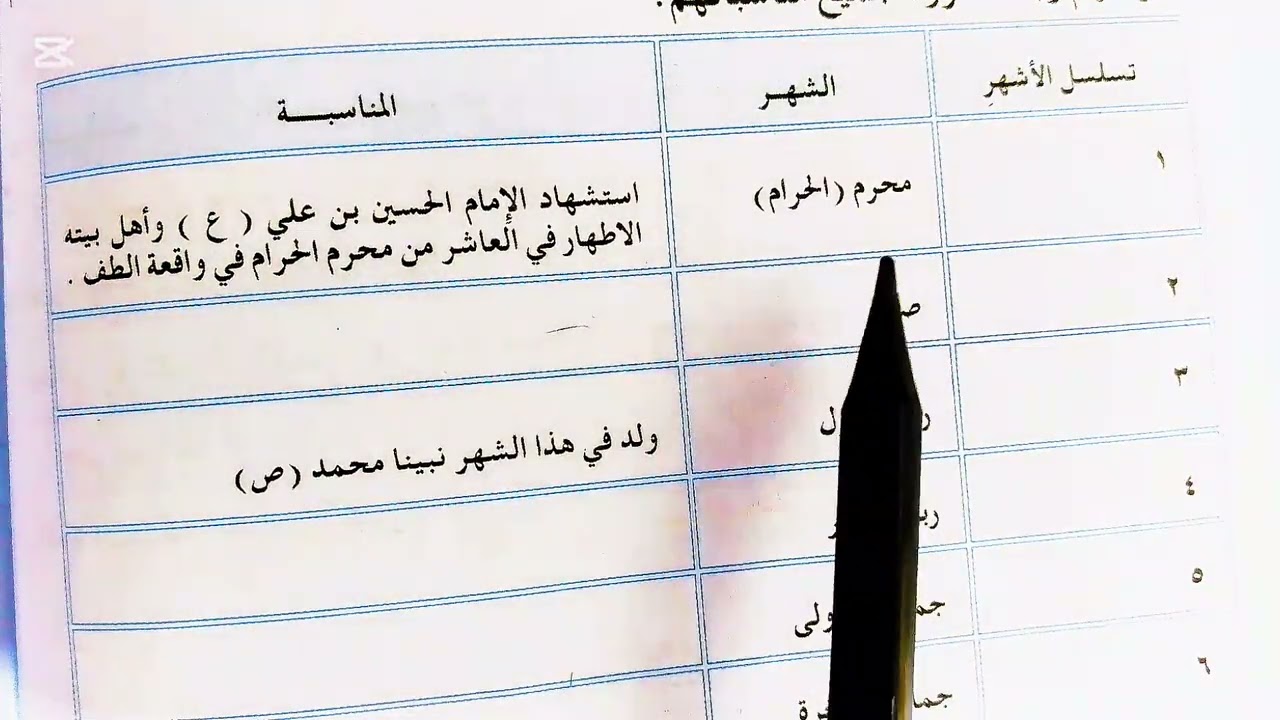 تسلسل الأشهرِ الشهر المناسبة
١ محرم (الحرام) استشهاد الإمام الحسين بن علي ( ع ) وأهل بيته
الاطهار في العاشر من محرم الحرام في واقعة الطف .
٢
٣ ولد في هذا الشهر نبينا محمد (ص)
٤
٥
٦